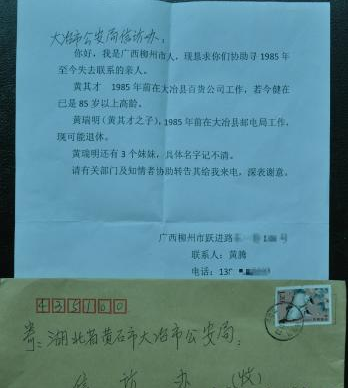 大冶市公安局信访办：
你好，我是广西柳州市人，现恳求你们协助寻1985年
至今失去联系的亲人。
黄其才 1985年前在大冶县百货公司工作，若今健在
已是85岁以上高龄。
黄瑞明（黄其才之子），1985年前在大冶县邮电局工作，
现可能退休。
黄瑞明还有3个妹妹，具体名字记不清。
请有关部门及知情者协助转告其给我来电，深表谢意。
广西柳州市跃进路 号
联系人：黄腾
电话：13
435100
寄：湖北省黄石市大冶市公安局：
信访办（收）